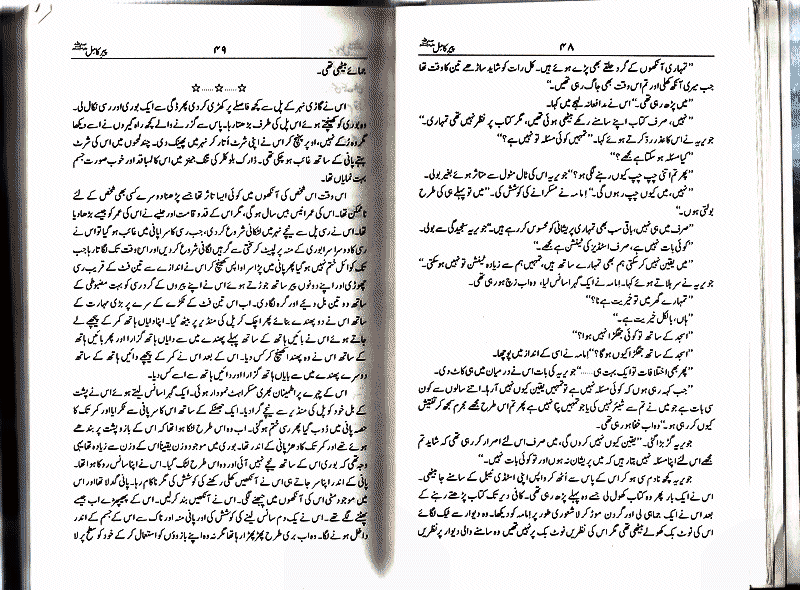 ۴۸ پیرِ کامل
"تمہاری آنکھوں کے گرد حلقے بھی پڑے ہوئے ہیں۔ کل رات کو شاید ساڑھے تین کا وقت تھا
جب میری آنکھ کھلی اور تم اس وقت بھی جاگ رہی تھیں۔"
"میں پڑھ رہی تھی۔" اس نے مدافعانہ لہجے میں کہا۔
"نہیں، صرف کتاب اپنے سامنے رکھے بیٹھی ہوئی تھیں، مگر کتاب پر نظر نہیں تھی تمہاری۔"
جویریہ نے اس کا عذر رد کرتے ہوئے کہا۔ "تمہیں کوئی مسئلہ تو نہیں ہے؟"
"کیا مسئلہ ہو سکتا ہے مجھے؟"
"پھر تم اتنی چپ چپ کیوں رہنے لگی ہو؟" جویریہ اس کی ٹال مٹول سے متاثر ہوئے بغیر بولی۔
"نہیں، میں کیوں چپ رہوں گی۔" اِمامہ نے مسکرانے کی کوشش کی۔ "میں تو پہلے ہی کی طرح
بولتی ہوں۔"
"صرف میں ہی نہیں، باقی سب بھی تمہاری پریشانی کو محسوس کر رہے ہیں۔" جویریہ سنجیدگی سے بولی۔
"کوئی بات نہیں ہے، صرف اسٹڈیز کی ٹینشن ہے مجھے۔"
"میں یقین نہیں کر سکتی ہم بھی تمہارے ساتھ ہیں، تمہیں ہم سے زیادہ ٹینشن تو نہیں ہو سکتی۔"
جویریہ نے سر ہلاتے ہوئے کہا۔ اِمامہ نے ایک گہرا سانس لیا، وہ اب زچ ہو رہی تھی۔
"تمہارے گھر میں تو خیریت ہے نا؟"
"ہاں، بالکل خیریت ہے۔"
"اسجد کے ساتھ تو کوئی جھگڑا نہیں ہوا؟"
"اسجد کے ساتھ جھگڑا کیوں ہوگا؟" اِمامہ نے اسی کے انداز میں پوچھا۔
"پھر بھی اختلافات تو ایک بہت ہی......" جویریہ کی بات اس نے درمیان میں ہی کاٹ دی۔
"جب کہہ رہی ہوں کہ کوئی مسئلہ نہیں ہے تو تمہیں یقین کیوں نہیں آ رہا۔ اتنے سالوں سے کون
سی بات ہے جو میں نے تم سے شیئر نہیں کی یا جو تمہیں پتا نہیں ہے پھر تم اس طرح مجھے مجرم سمجھ کر تفتیش
کیوں کر رہی ہو۔" وہ اب خفا ہو رہی تھی۔
جویریہ گڑبڑا گئی۔ "یقین کیوں نہیں کروں گی، میں صرف اس لئے اصرار کر رہی تھی کہ شاید تم
مجھے اس لئے اپنا مسئلہ نہیں بتا رہیں کہ میں پریشان نہ ہوں اور تو کوئی بات نہیں۔"
جویریہ کچھ نادم سی ہو کر اس کے پاس سے اٹھ کر واپس اپنی اسٹڈی ٹیبل کے سامنے جا بیٹھی۔
اس نے ایک بار پھر وہ کتاب کھول لی جسے وہ پہلے پڑھ رہی تھی۔ کافی دیر تک کتاب پڑھتے رہنے کے
بعد اس نے ایک جماہی لی اور گردن موڑ کر لاشعوری طور پر اِمامہ کو دیکھا۔ وہ دیوار سے ٹیک لگائے
اس کی نوٹ بک کھولے بیٹھی تھی مگر اس کی نظریں نوٹ بک پر نہیں تھیں وہ سامنے والی دیوار پر نظریں
۴۹ پیرِ کامل
جمائے بیٹھی تھی۔
☆......☆......☆
اس نے گاڑی نہر کے پل سے کچھ فاصلے پر کھڑی کر دی پھر ڈگی سے ایک بوری اور رسی نکال لی۔
وہ بوری کو کھینچتے ہوئے اس پل کی طرف بڑھتا رہا۔ پاس سے گزرنے والے کچھ راہ گیروں نے اسے دیکھا
مگر وہ رُکے نہیں، اوپر پہنچ کر اس نے اپنی شرٹ اُتار کر نہر میں پھینک دی۔ چند لمحوں میں اس کی شرٹ
بہتے پانی کے ساتھ غائب ہو چکی تھی۔ ڈارک بلو کلر کی تنگ جینز میں اس کا لمبا قد اور خوب صورت جسم
بہت نمایاں تھا۔
اس وقت اس شخص کی آنکھوں میں کوئی ایسا تاثر تھا جسے پڑھنا دوسرے کسی بھی شخص کے لئے
ناممکن تھا۔ اس کی عمر انیس بیس سال ہو گی، مگر اس کے قد و قامت اور حلیے نے اس کی عمر کو جیسے بڑھا دیا
تھا۔ اس نے رسی پل سے نیچے نہر میں لٹکانی شروع کر دی، جب رسی کا سرا پانی میں غائب ہو گیا تو اس نے
رسی کا دوسرا سرا بوری کے منہ پر لپیٹ کر سختی سے گرہیں لگانی شروع کر دیں اور اس وقت تک لگاتا رہا جب
تک کوائل ختم نہیں ہو گیا پھر پانی میں پڑا سرا واپس کھینچ کر اس نے اندازے سے تین فٹ کے قریب رسی
چھوڑی اور اپنے دونوں پیر ساتھ جوڑتے ہوئے اس نے اپنے پیروں کے گرد رسی کو بہت مضبوطی کے
ساتھ دو تین بل دیئے اور گرہ لگا دی۔ اب اس تین فٹ کے ٹکڑے کے سرے پر بڑی مہارت کے
ساتھ اس نے دو پھندے بنائے پھر اچک کر پل کی منڈیر پر بیٹھ گیا۔ اپنا دایاں ہاتھ کمر کے پیچھے لے
جاتے ہوئے اس نے بائیں ہاتھ کے ساتھ پہلے پھندے میں سے دایاں ہاتھ گزارا اور پھر بائیں ہاتھ
کے ساتھ اس نے وہ پھندا کھینچ کر کس دیا۔ اس کے بعد اس نے کمر کے پیچھے دائیں ہاتھ کے ساتھ
دوسرے پھندے میں سے بایاں ہاتھ گزارا اور دائیں ہاتھ سے اسے کس دیا۔
اس کے چہرے پر اطمینان بھری مسکراہٹ نمودار ہوئی۔ ایک گہرا سانس لیتے ہوئے اس نے پشت
کے بل خود کو پل کی منڈیر سے نیچے گرا دیا۔ ایک جھٹکے کے ساتھ اس کا سر پانی سے ٹکرایا اور کمر تک کا
حصہ پانی میں ڈوب گیا پھر رسی ختم ہو گئی۔ اب وہ اس طرح لٹکا ہوا تھا کہ اس کے بازو پشت پر بندھے
ہوئے تھے اور کمر تک کا دھڑ پانی کے اندر تھا۔ بوری میں موجود وزن یقیناً اس کے وزن سے زیادہ تھا یہی
وجہ تھی کہ بوری اس کے ساتھ نیچے نہیں آئی اور وہ اس طرح لٹک گیا۔ اس نے اپنا سانس روکا ہوا تھا۔
پانی کے اندر اپنا سر جاتے ہی اس نے آنکھیں کھلی رکھنے کی کوشش کی مگر ناکام رہا۔ پانی گدلا تھا اور اس
میں موجود مٹی اس کی آنکھوں میں چبھنے لگی۔ اس نے آنکھیں بند کر لیں۔ اس کے پھیپھڑے اب جیسے
پھٹنے لگے تھے۔ اس نے یک دم سانس لینے کی کوشش کی اور پانی منہ اور ناک سے اس کے جسم کے اندر
داخل ہونے لگا۔ وہ اب بری طرح پھڑپھڑا رہا تھا مگر نہ وہ اپنے بازوؤں کو استعمال کر کے خود کو سطح پر لا